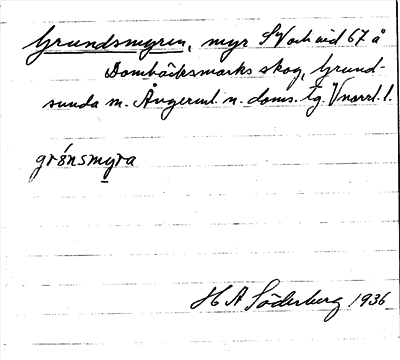 Grundsmyren, myr SV och vid 67 å
Dombäcksmarks skog, Grund-
sunda sn. Ångerml. n. doms. tg. Vnorrl. l.
grö́nsmyra
H A Söderberg 1936